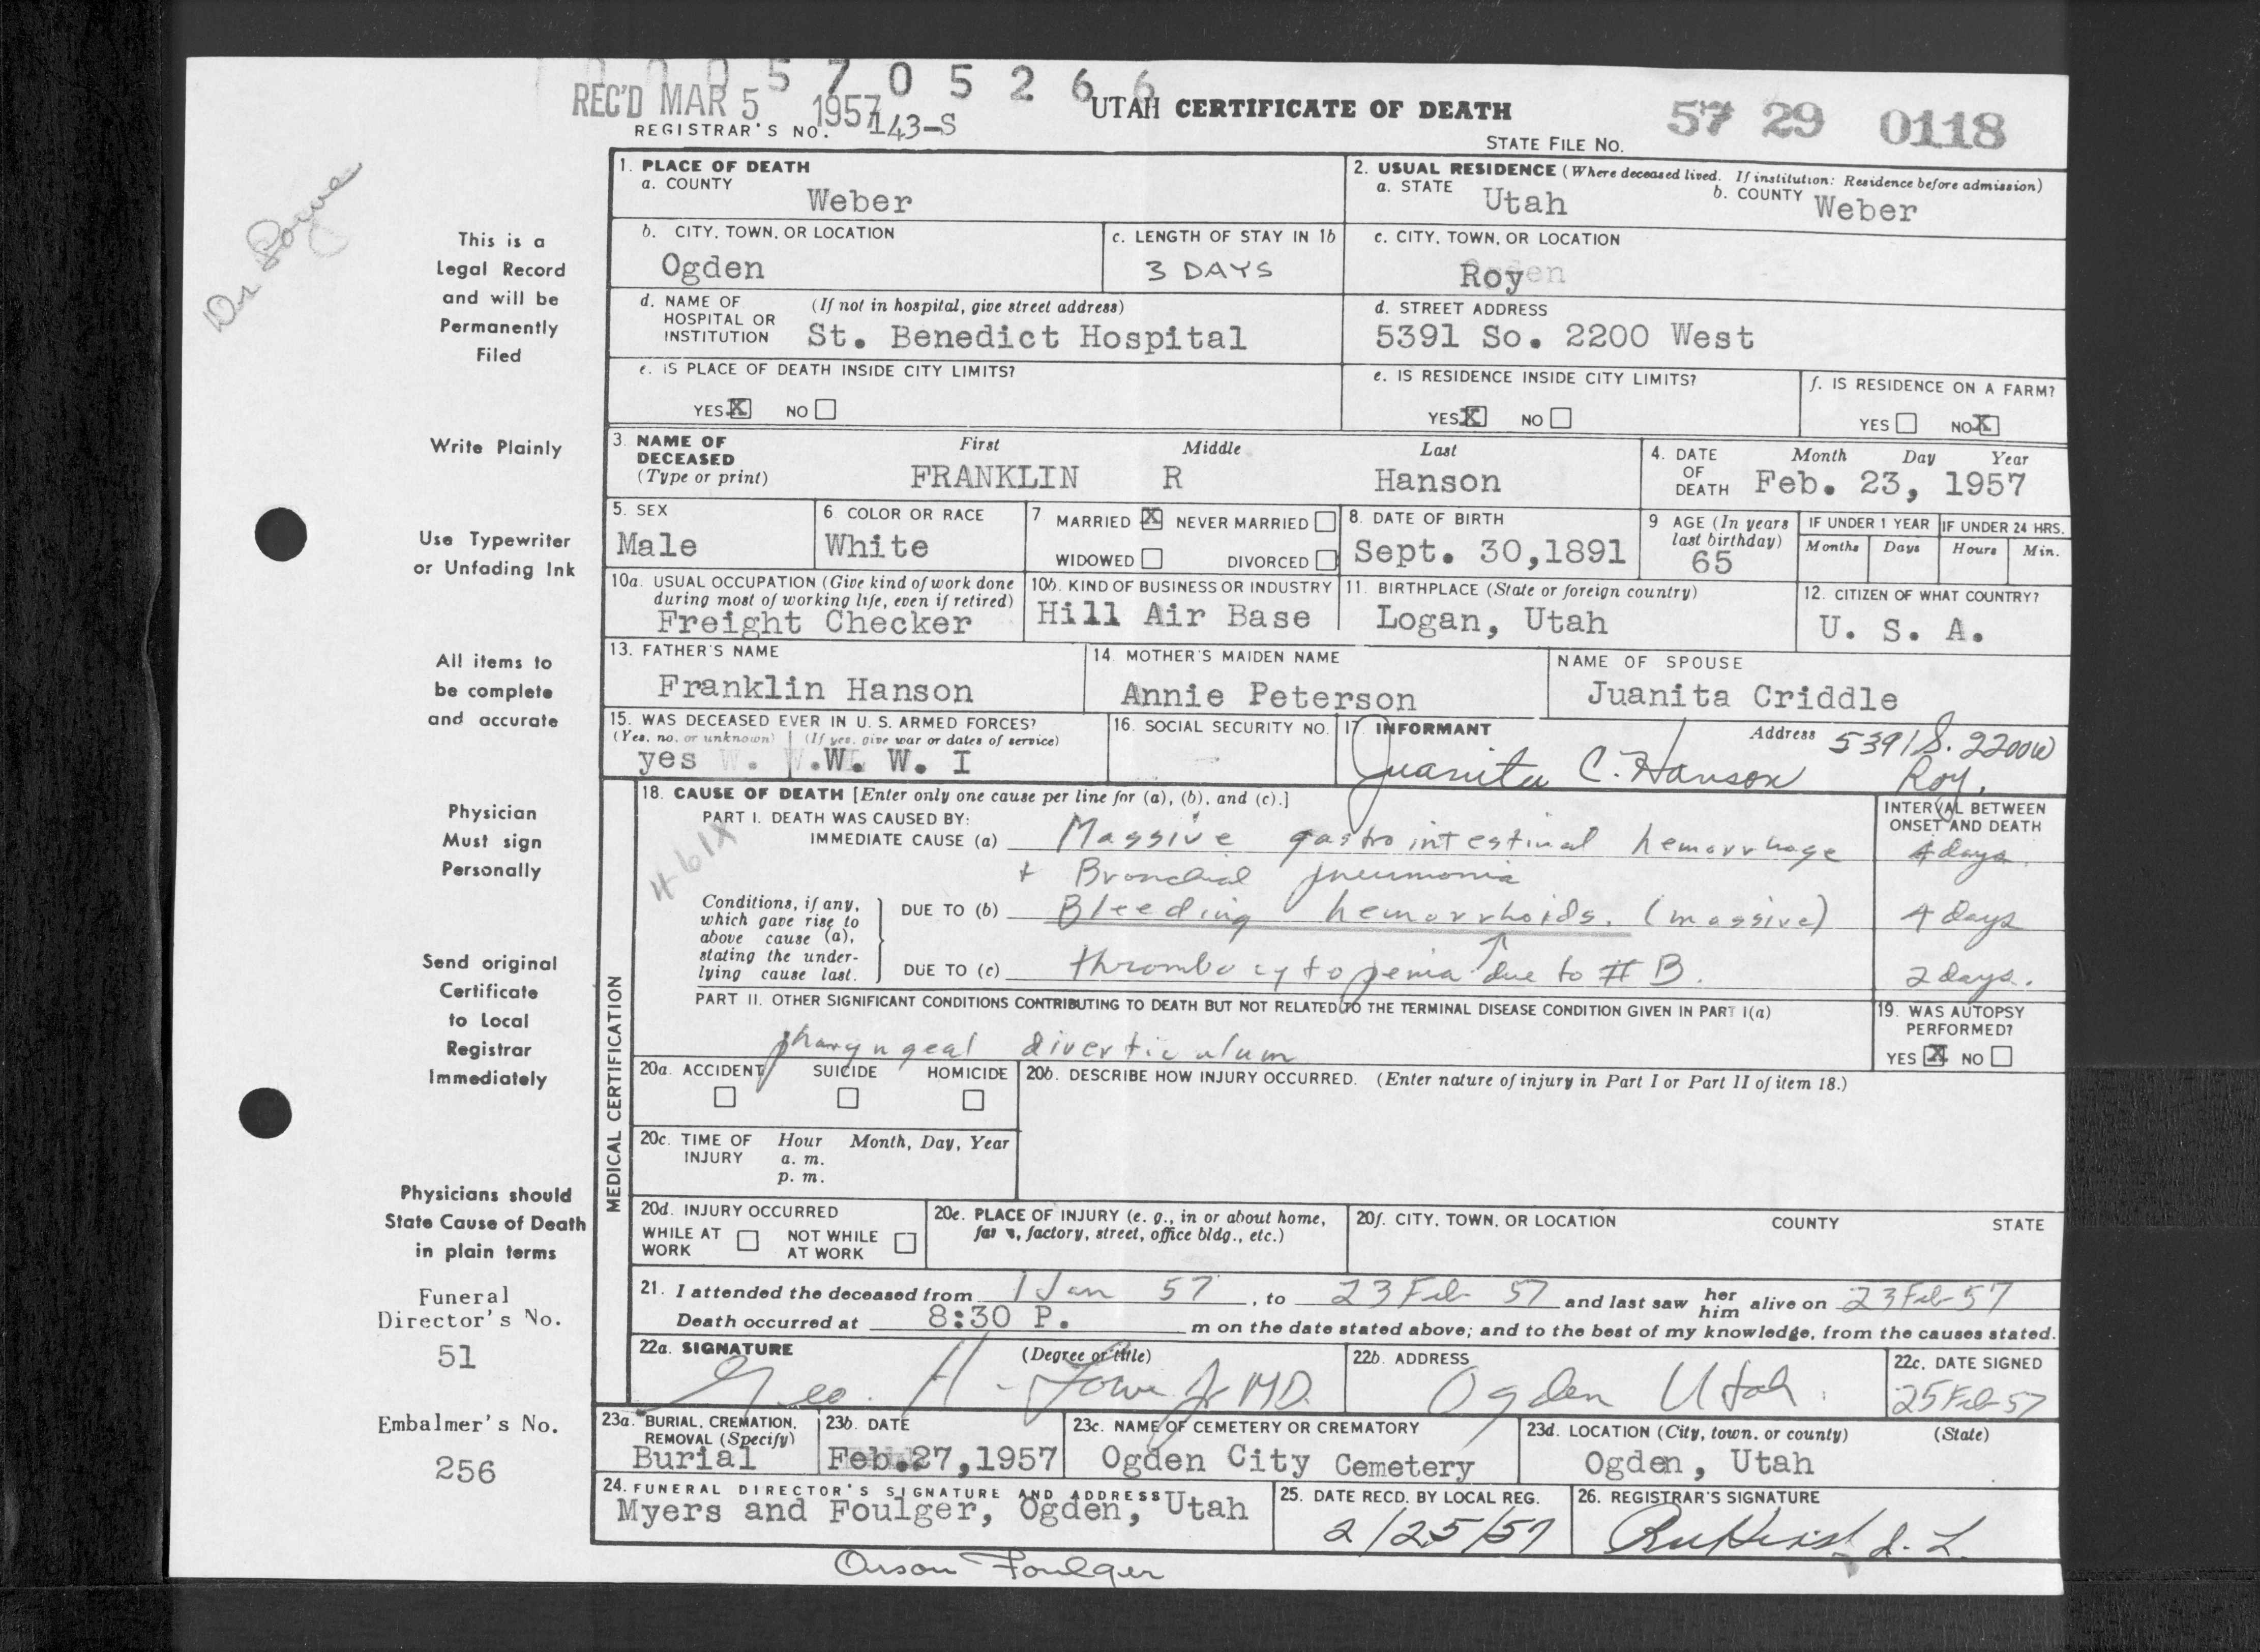 0 0 0 5 7 0 5 2 6 6
REC'D MAR 5 1957
REGISTRAR'S NO. 143-S
UTAH CERTIFICATE OF DEATH
STATE FILE NO. 57 29 0118
Dr
This is a
Legal Record
and will be
Permanently
Filed
Write Plainly
Use Typewriter
or Unfading Ink
All items to
be complete
and accurate
Physician
Must sign
Personally
Send original
Certificate
to Local
Registrar
Immediately
Physicians should
State Cause of Death
in plain terms
Funeral
Director's No.
51
Embalmer's No.
256
1. PLACE OF DEATH
a. COUNTY
Weber
2. USUAL RESIDENCE (Where deceased lived. If institution: Residence before admission)
a. STATE Utah b. COUNTY Weber
b. CITY, TOWN, OR LOCATION
Ogden
c. LENGTH OF STAY IN 1b
3 DAYS
c. CITY, TOWN, OR LOCATION
Roy
d. NAME OF HOSPITAL OR INSTITUTION (If not in hospital, give street address)
St. Benedict Hospital
d. STREET ADDRESS
5391 So. 2200 West
e. IS PLACE OF DEATH INSIDE CITY LIMITS?
YES X NO
e. IS RESIDENCE INSIDE CITY LIMITS?
YES X NO
f. IS RESIDENCE ON A FARM?
YES NO X
3. NAME OF DECEASED (Type or print)
First Middle Last
FRANKLIN R Hanson
4. DATE OF DEATH Month Day Year
Feb. 23, 1957
5. SEX
Male
6 COLOR OR RACE
White
7 MARRIED X NEVER MARRIED
WIDOWED DIVORCED
8. DATE OF BIRTH
Sept. 30,1891
9 AGE (In years last birthday)
65
IF UNDER 1 YEAR IF UNDER 24 HRS.
Months Days Hours Min.
10a. USUAL OCCUPATION (Give kind of work done during most of working life, even if retired)
Freight Checker
10b. KIND OF BUSINESS OR INDUSTRY
Hill Air Base
11. BIRTHPLACE (State or foreign country)
Logan, Utah
12. CITIZEN OF WHAT COUNTRY?
U. S. A.
13. FATHER'S NAME
Franklin Hanson
14. MOTHER'S MAIDEN NAME
Annie Peterson
NAME OF SPOUSE
Juanita Criddle
15. WAS DECEASED EVER IN U. S. ARMED FORCES?
(Yes, no, or unknown) (If yes, give war or dates of service)
yes W. W. I
16. SOCIAL SECURITY NO.
17. INFORMANT Address
Juanita C. Hanson 5391 S. 2200 W
Roy.
18. CAUSE OF DEATH [Enter only one cause per line for (a), (b), and (c).]
INTERVAL BETWEEN ONSET AND DEATH
PART I. DEATH WAS CAUSED BY:
IMMEDIATE CAUSE (a) Massive gastrointestinal hemorrhage 4 days.
+ Bronchial pneumonia
461X
Conditions, if any, which gave rise to above cause (a), stating the underlying cause last.
DUE TO (b) Bleeding hemorrhoids. (massive) 4 days
DUE TO (c) thrombocytopenia due to # B. 2 days.
PART II. OTHER SIGNIFICANT CONDITIONS CONTRIBUTING TO DEATH BUT NOT RELATED TO THE TERMINAL DISEASE CONDITION GIVEN IN PART I(a)
pharyngeal diverticulum
19. WAS AUTOPSY PERFORMED?
YES X NO
MEDICAL CERTIFICATION
20a. ACCIDENT SUICIDE HOMICIDE
20b. DESCRIBE HOW INJURY OCCURRED. (Enter nature of injury in Part I or Part II of item 18.)
20c. TIME OF INJURY Hour Month, Day, Year
a. m.
p. m.
20d. INJURY OCCURRED
WHILE AT WORK NOT WHILE AT WORK
20e. PLACE OF INJURY (e. g., in or about home, farm, factory, street, office bldg., etc.)
20f. CITY, TOWN, OR LOCATION COUNTY STATE
21. I attended the deceased from 1 Jan 57, to 23 Feb 57 and last saw her him alive on 23 Feb 57
Death occurred at 8:30 P. m on the date stated above; and to the best of my knowledge, from the causes stated.
22a. SIGNATURE (Degree or title)
Geo. H. Lowe Jr MD.
22b. ADDRESS
Ogden Utah.
22c. DATE SIGNED
25 Feb 57
23a. BURIAL, CREMATION, REMOVAL (Specify)
Burial
23b. DATE
Feb.27,1957
23c. NAME OF CEMETERY OR CREMATORY
Ogden City Cemetery
23d. LOCATION (City, town, or county) (State)
Ogden, Utah
24. FUNERAL DIRECTOR'S SIGNATURE AND ADDRESS
Myers and Foulger, Ogden, Utah
Orson Foulger
25. DATE RECD. BY LOCAL REG.
2/25/57
26. REGISTRAR'S SIGNATURE